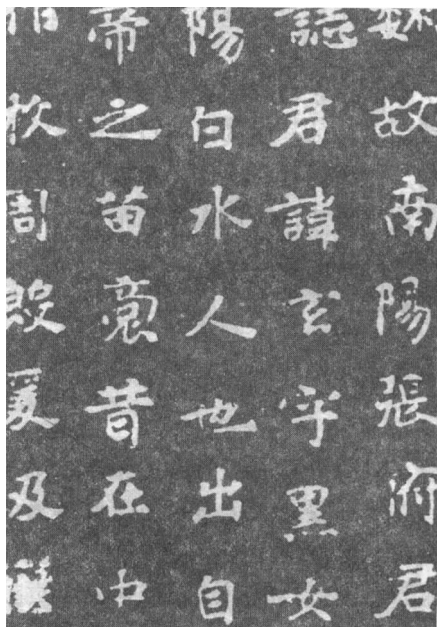 魏故南陽張府君
誌君諱玄字黑女
陽白水人也出自
帝之苗裔昔在中
牧周殷爰及漢